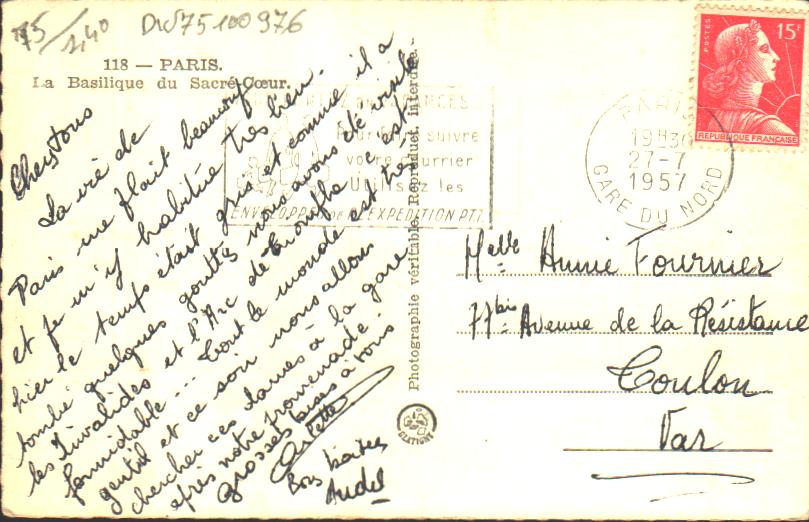 75
1,40
DW75100976
118 — PARIS.
La Basilique du Sacré-Cœur.
Chers Tous
La vie de
Paris me plait beaucoup
et je m'y habitue très bien.
hier le temps était gris et comme il a
tombé quelques gouttes nous avons été visiter
les Invalides et l'Arc de Triomphe c'est
formidable... Tout le monde est très
gentil et ce soir nous allons
chercher ces dames à la gare
après notre promenade.
grosses bises à tous
Arlette
Bons baisers
Photographie véritable. Reproduct. interdite.
GLATIGNY
VACANCES
Pour faire suivre
votre courrier
Utilisez les
ENVELOPPES DE RÉEXPEDITION PTT
PARIS
19H30
27-7
1957
GARE DU NORD
POSTES
15F
REPUBLIQUE FRANÇAISE
Melle Annie Fournier
77bis Avenue de la Résistance
Toulon
Var